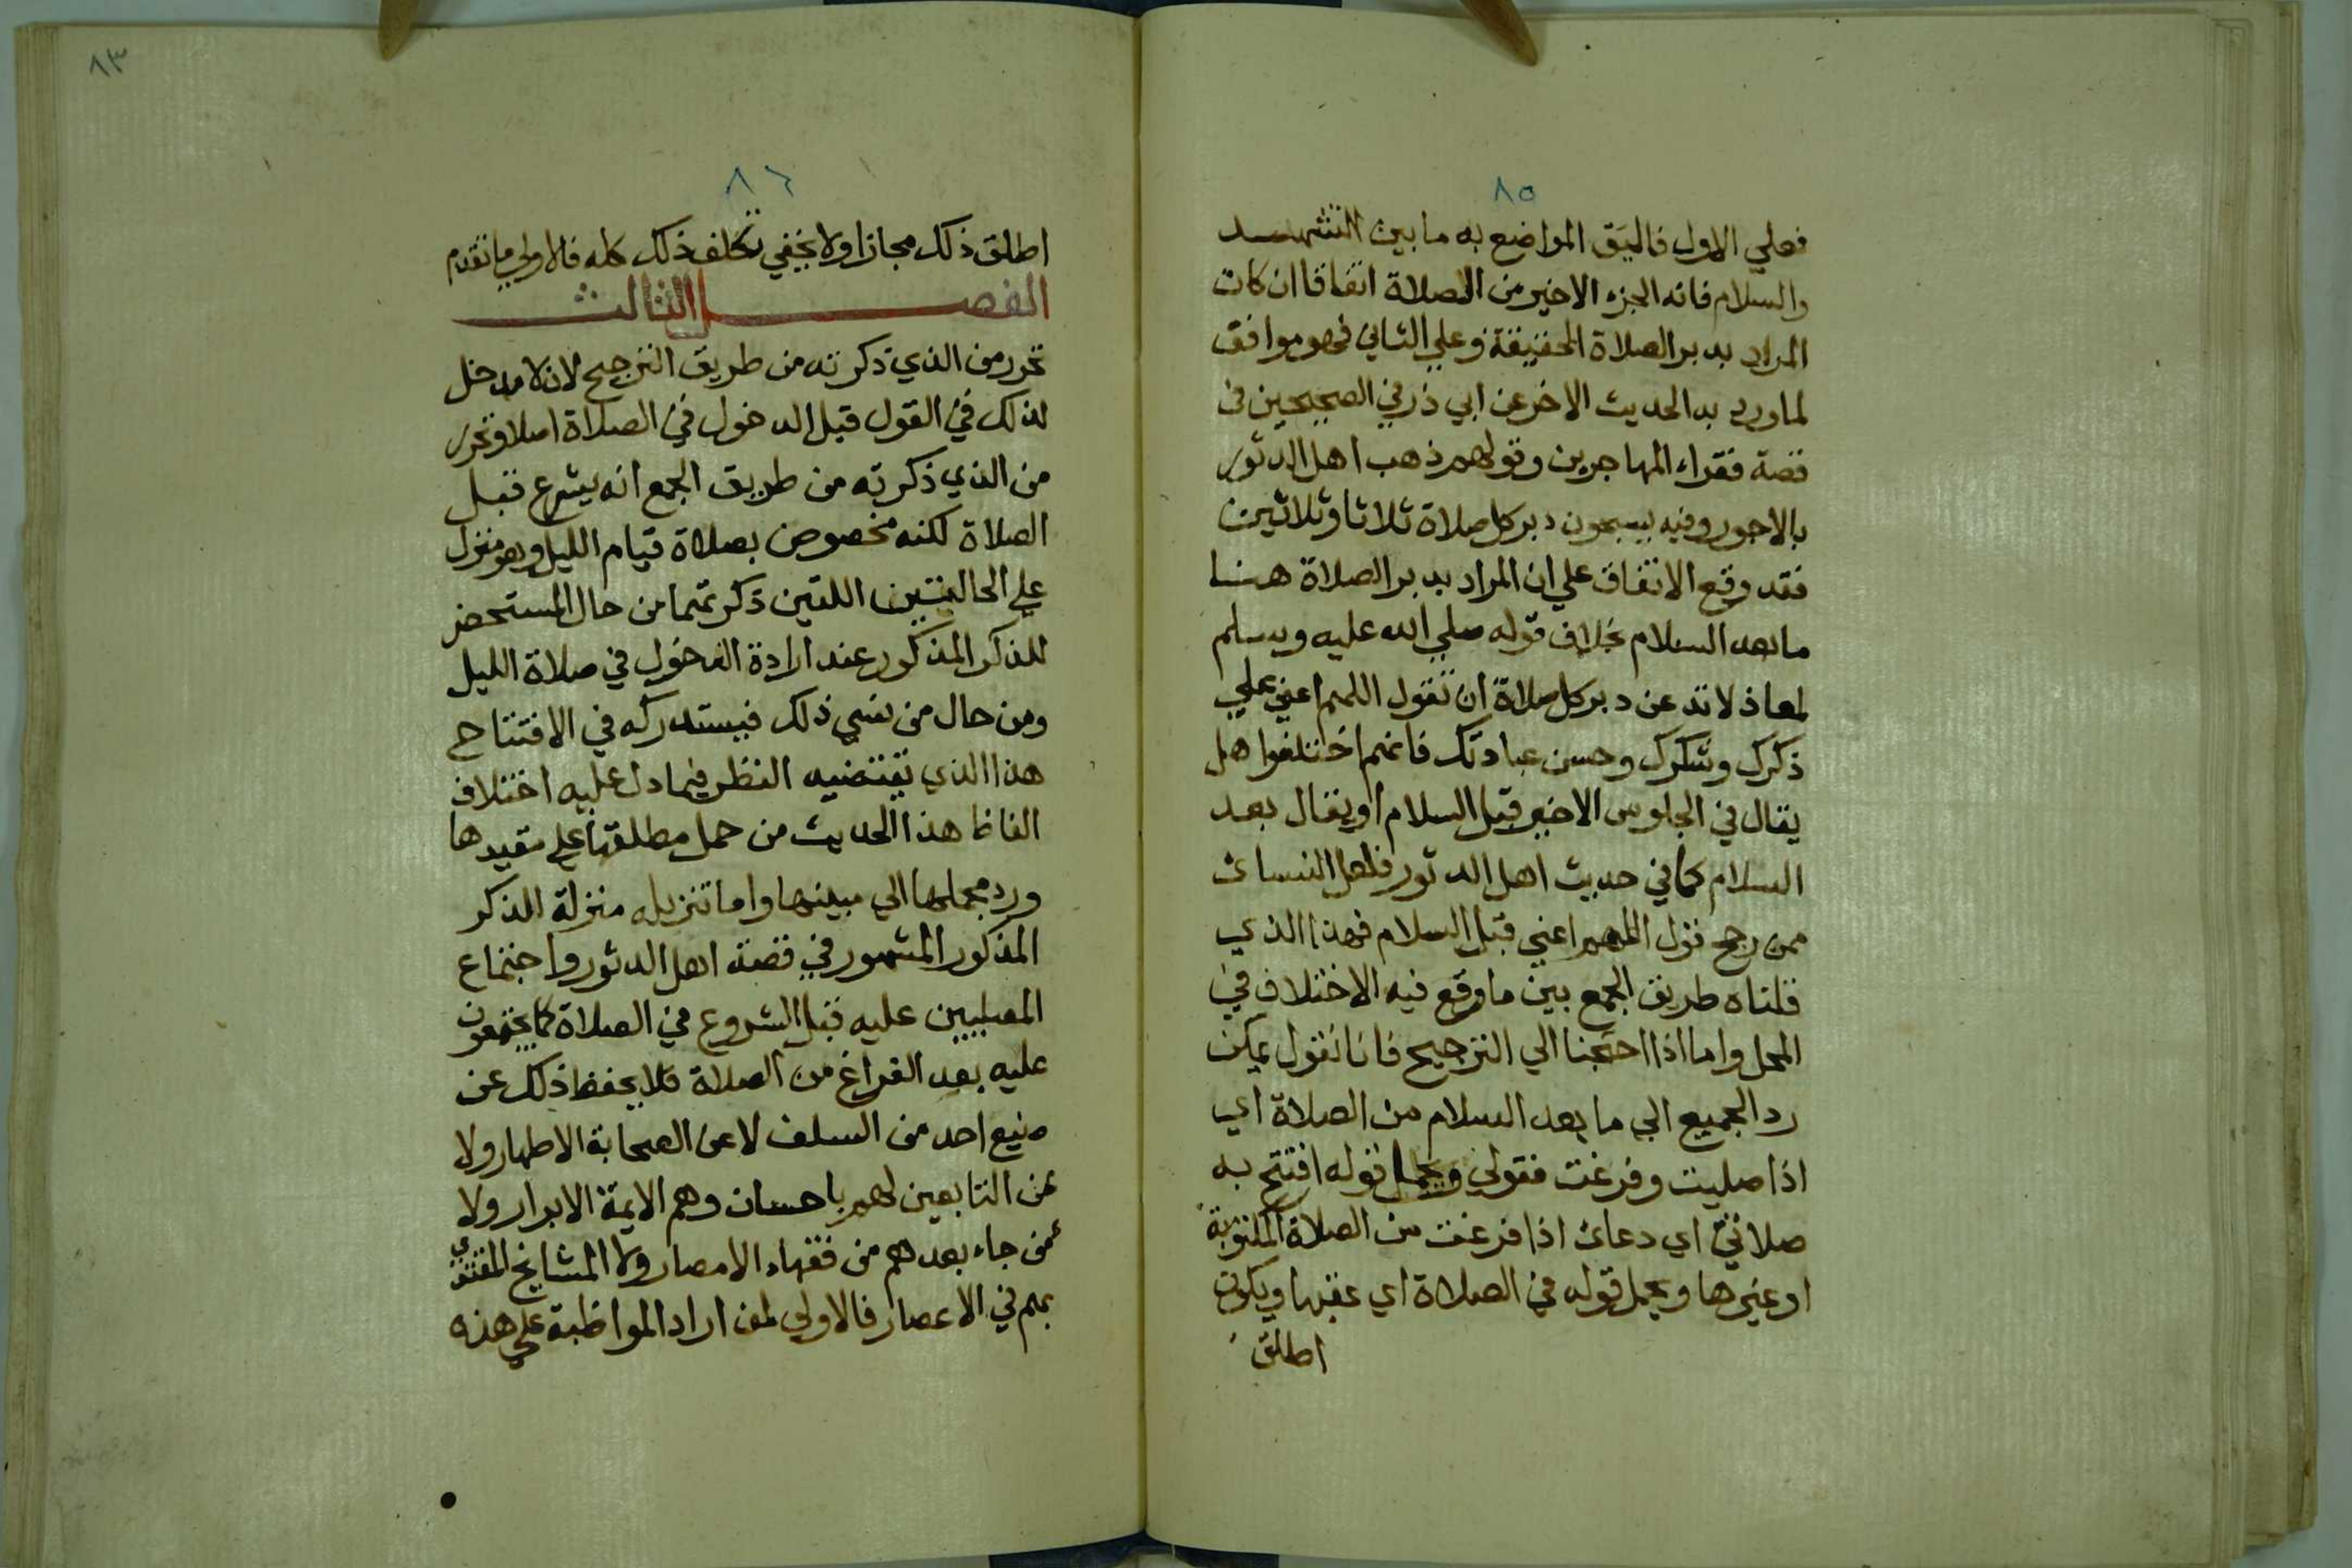 ٨٥
فعلي الاول فاليق المواضع به ما بين التشهد
والسلام فانه الجزء الاخير من الصلاة اتفاقا ان كان
المراد بدبر الصلاة الحقيقة وعلي الثاني فهو موافق
لما ورد به الحديث الاخر عن ابي ذر في الصحيحين في
قصة فقراء المهاجرين وقولهم ذهب اهل الدثور
بالاجور وفيه يسبحون دبر كل صلاة ثلاثا وثلاثين
فقد وقع الاتفاق علي ان المراد بدبر الصلاة هنا
ما بعد السلام بخلاف قوله صلي الله عليه وسلم
لمعاذ لا تدعن دبر كل صلاة ان تقول اللهم اعني علي
ذكرك وشكرك وحسن عبادتك فانهم اختلفوا هل
يقال في الجلوس الاخير قبل السلام او يقال بعد
السلام كما في حديث اهل الدثور فلعل النسائ
ممن رجح قول اللهم اعني قبل السلام فهذا الذي
قلناه طريق الجمع بين ما وقع فيه الاختلاف في
المحل واما اذا احتجنا الي الترجيح فانا نقول يمكن
رد الجميع الي ما بعد السلام من الصلاة اي
اذا صليت وفرغت فقولي ويحمل قوله افتتح به
صلاتي اي دعائ اذا فرغت من الصلاة المكتوبة
او غيرها ويحمل قوله في الصلاة اي عقبها ويكون
اطلق
٨٣
٨٦
اطلق ذلك مجازا ولا يخفي تكلف ذلك كله فالاولي ما تقدم
الفصل الثالث
تحرر من الذي ذكرته من طريق الترجيح لان لا مدخل
لذلك في القول قبل الدخول في الصلاة اصلا وتحرر
من الذي ذكرته من طريق الجمع انه يشرع قبل
الصلاة لكنه مخصوص بصلاة قيام الليل وهو منزل
علي الحالتين اللتين ذكرتهما من حال المستحضر
للذكر المذكور عند ارادة الدخول في صلاة الليل
ومن حال من نسي ذلك فيستدركه في الافتتاح
هذا الذي يقتضيه النظر فيما دل عليه اختلاف
الفاظ هذا الحديث من حمل مطلقها علي مقيدها
ورد مجملها الي مبينها واما تنزيله منزلة الذكر
المذكور المشهور في قصة اهل الدثور واجتماع
المصليين عليه قبل الشروع في الصلاة كما يجتمعون
عليه بعد الفراغ من الصلاة فلا يحفظ ذلك عن
صنيع احد من السلف لا عن الصحابة الاطهار ولا
عن التابعين لهم باحسان وهم الايمة الابرار ولا
عمن جاء بعدهم من فقهاء الامصار ولا المشايخ المقتدي
بهم في الاعصار فالاولي لمن اراد المواظبة علي هذه